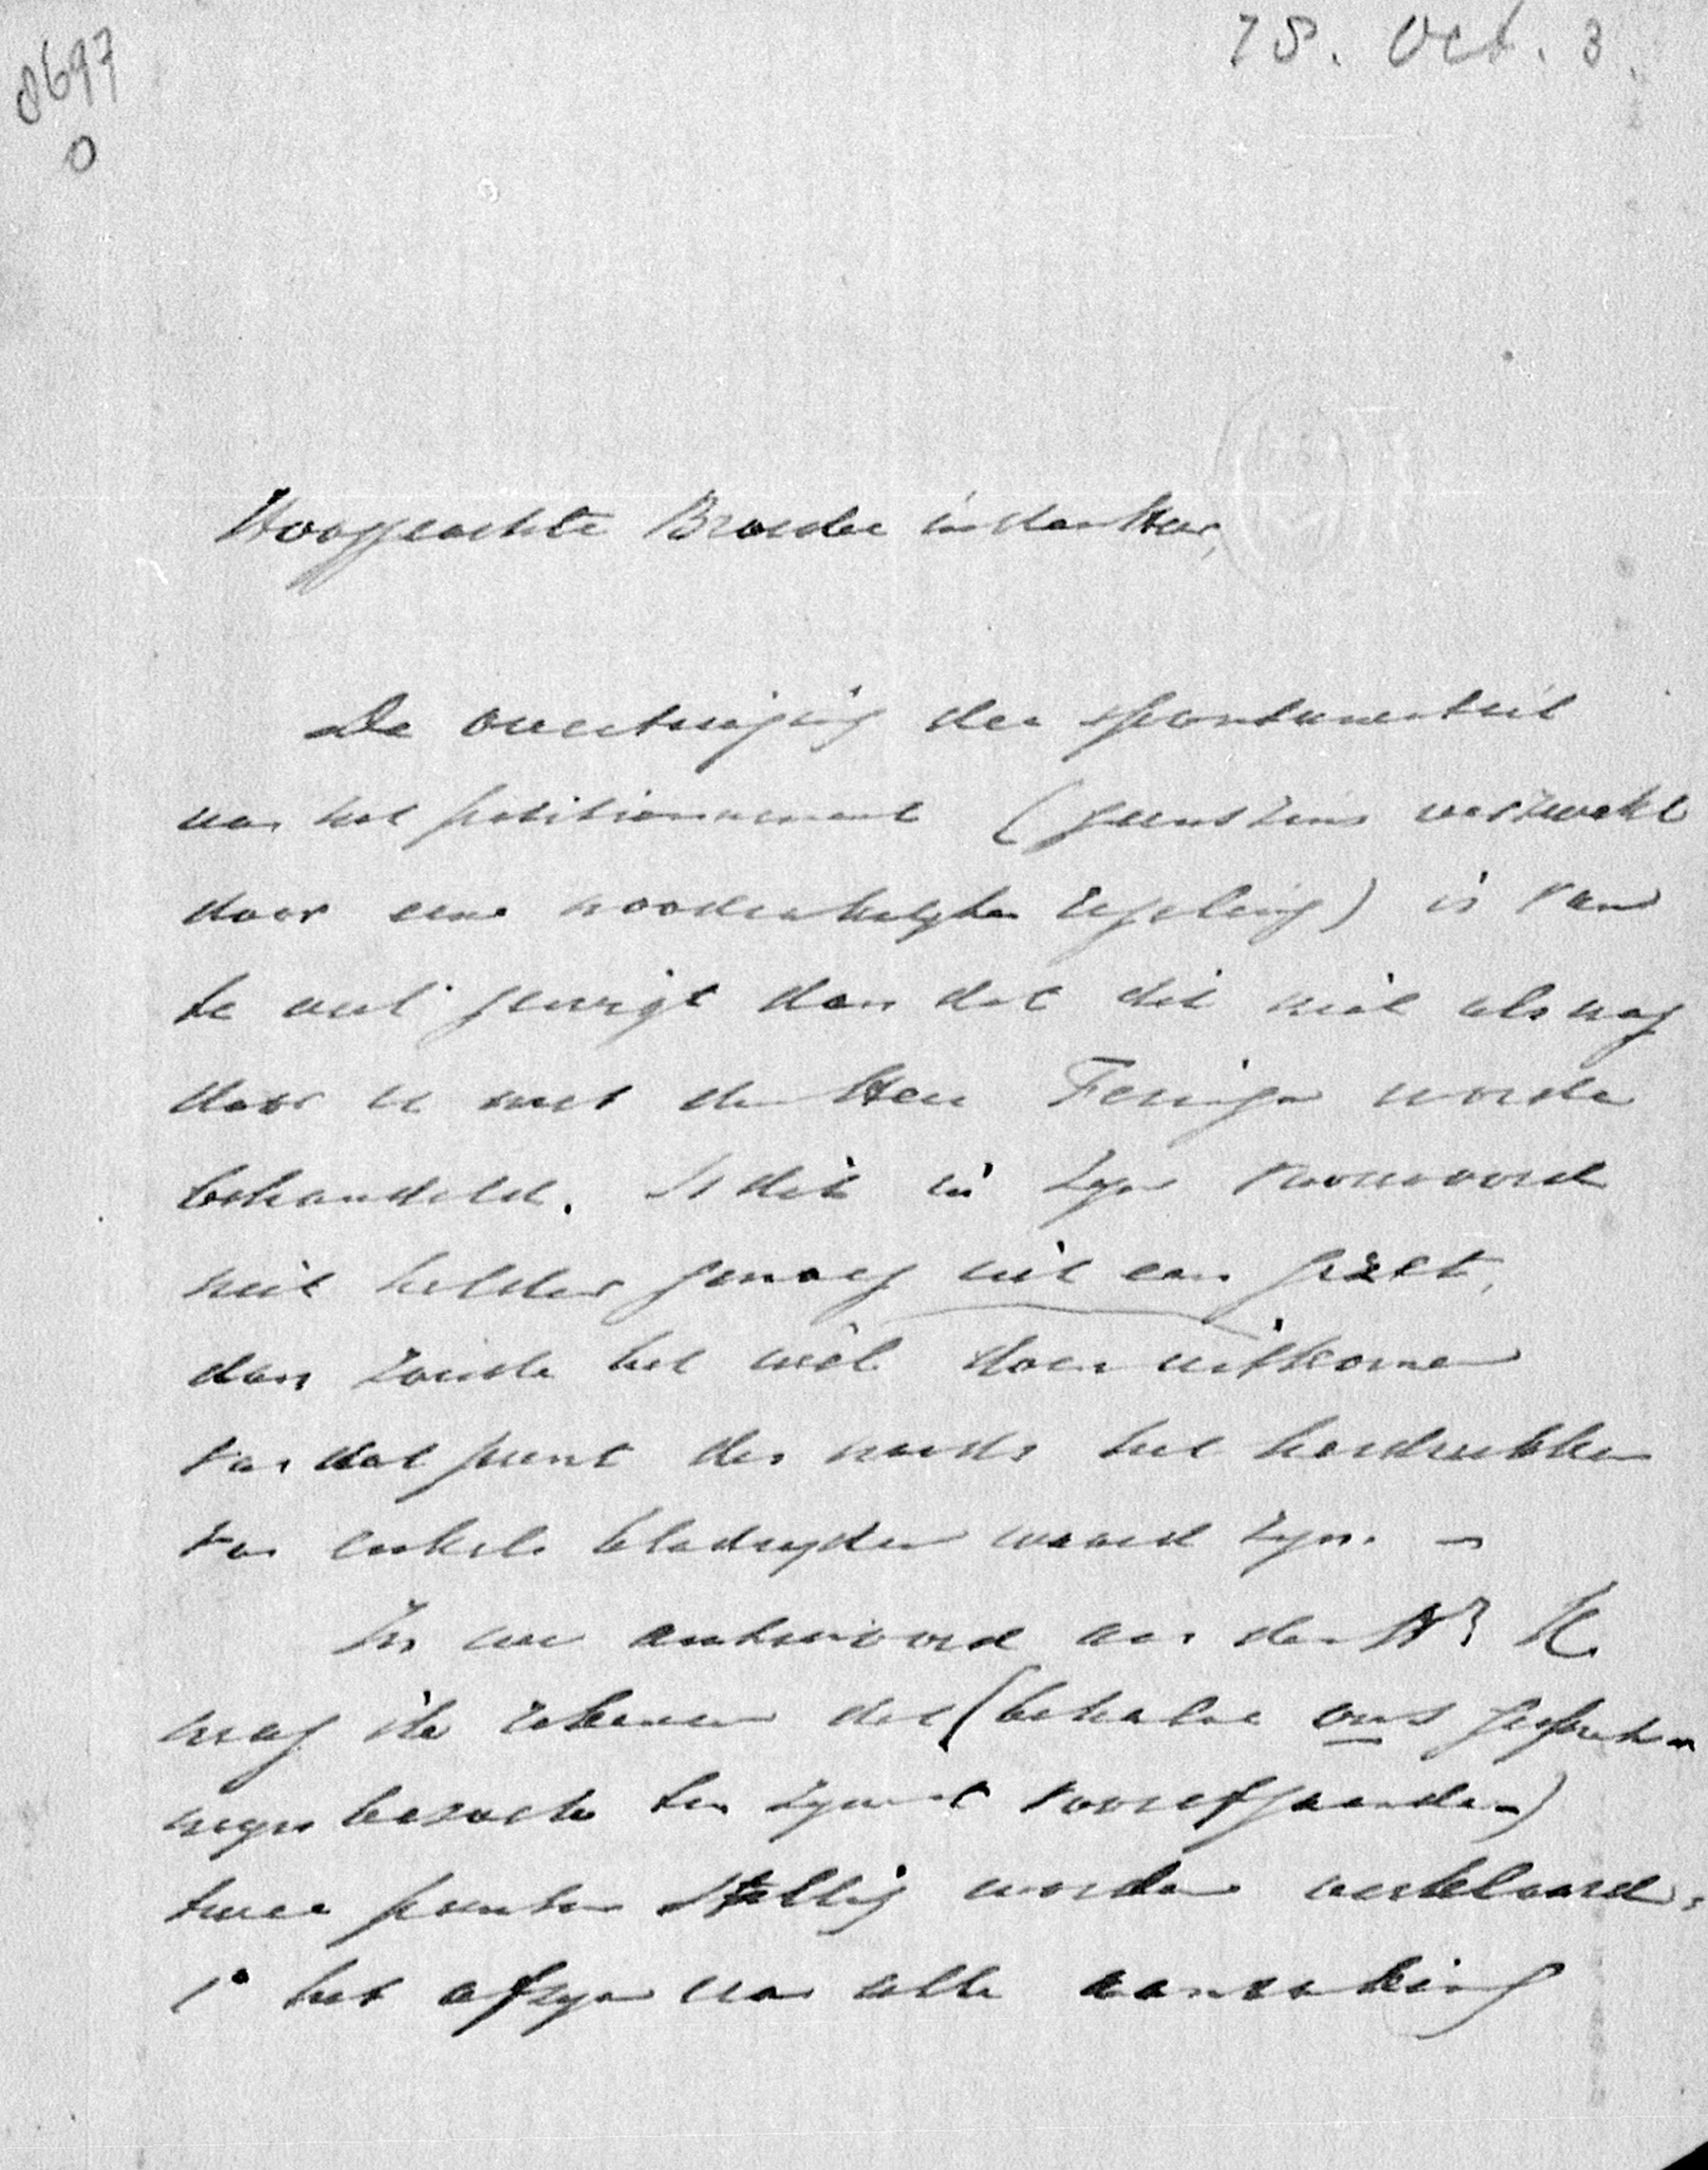 8697
0
78. Oct. 3.
Hooggeachte Broeder in den Heer,
De overtuiging der spontaneiteit
van het petitionnement (geenszins verzwakt
door eene noodzakelyke regeling) is van
te veel gewigt dan dat dit niet alsnog
door u met den Heer Feringa worde
behandeld. Is dit in zyn voorwoord
niet helder genoeg uit een gezet,
dan zoude het wèl doen uitkomen
van dat punt des noods het herdrukken
van enkele bladzyden waard zyn. –
In uw antwoord aan den Hr K.
mag ik rekenen dat (behalve ons gesprek en
myn bezoek ten zynent voorafgaande)
twee punten stellig worden verklaard:
1° het afzyn van alle aanraking